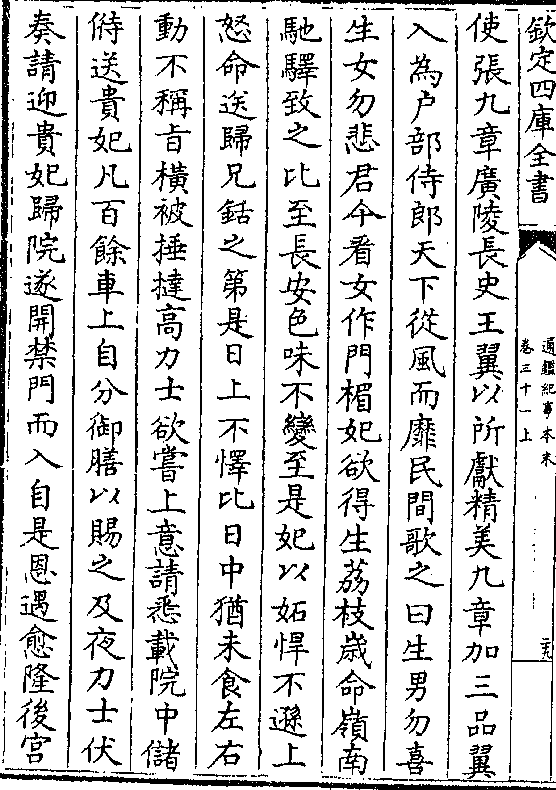 欽定四庫全書
通鑑紀事本末
卷三十一上
使張九章廣陵長史王翼以所獻精美九章加三品翼
入為户部侍郎天下從風而靡民間歌之曰生男勿喜
生女勿悲君今看女作門楣妃欲得生荔枝歲命嶺南
馳驛致之比至長安色味不變至是妃以妬悍不遜上
怒命送歸兄銛之第是日上不懌比日中猶未食左右
動不稱㫖橫被捶撻髙力士欲嘗上意請悉載院中儲
偫送貴妃凡百餘車上自分御膳以賜之及夜力士伏
奏請迎貴妃歸院遂開禁門而入自是恩遇愈隆後宫